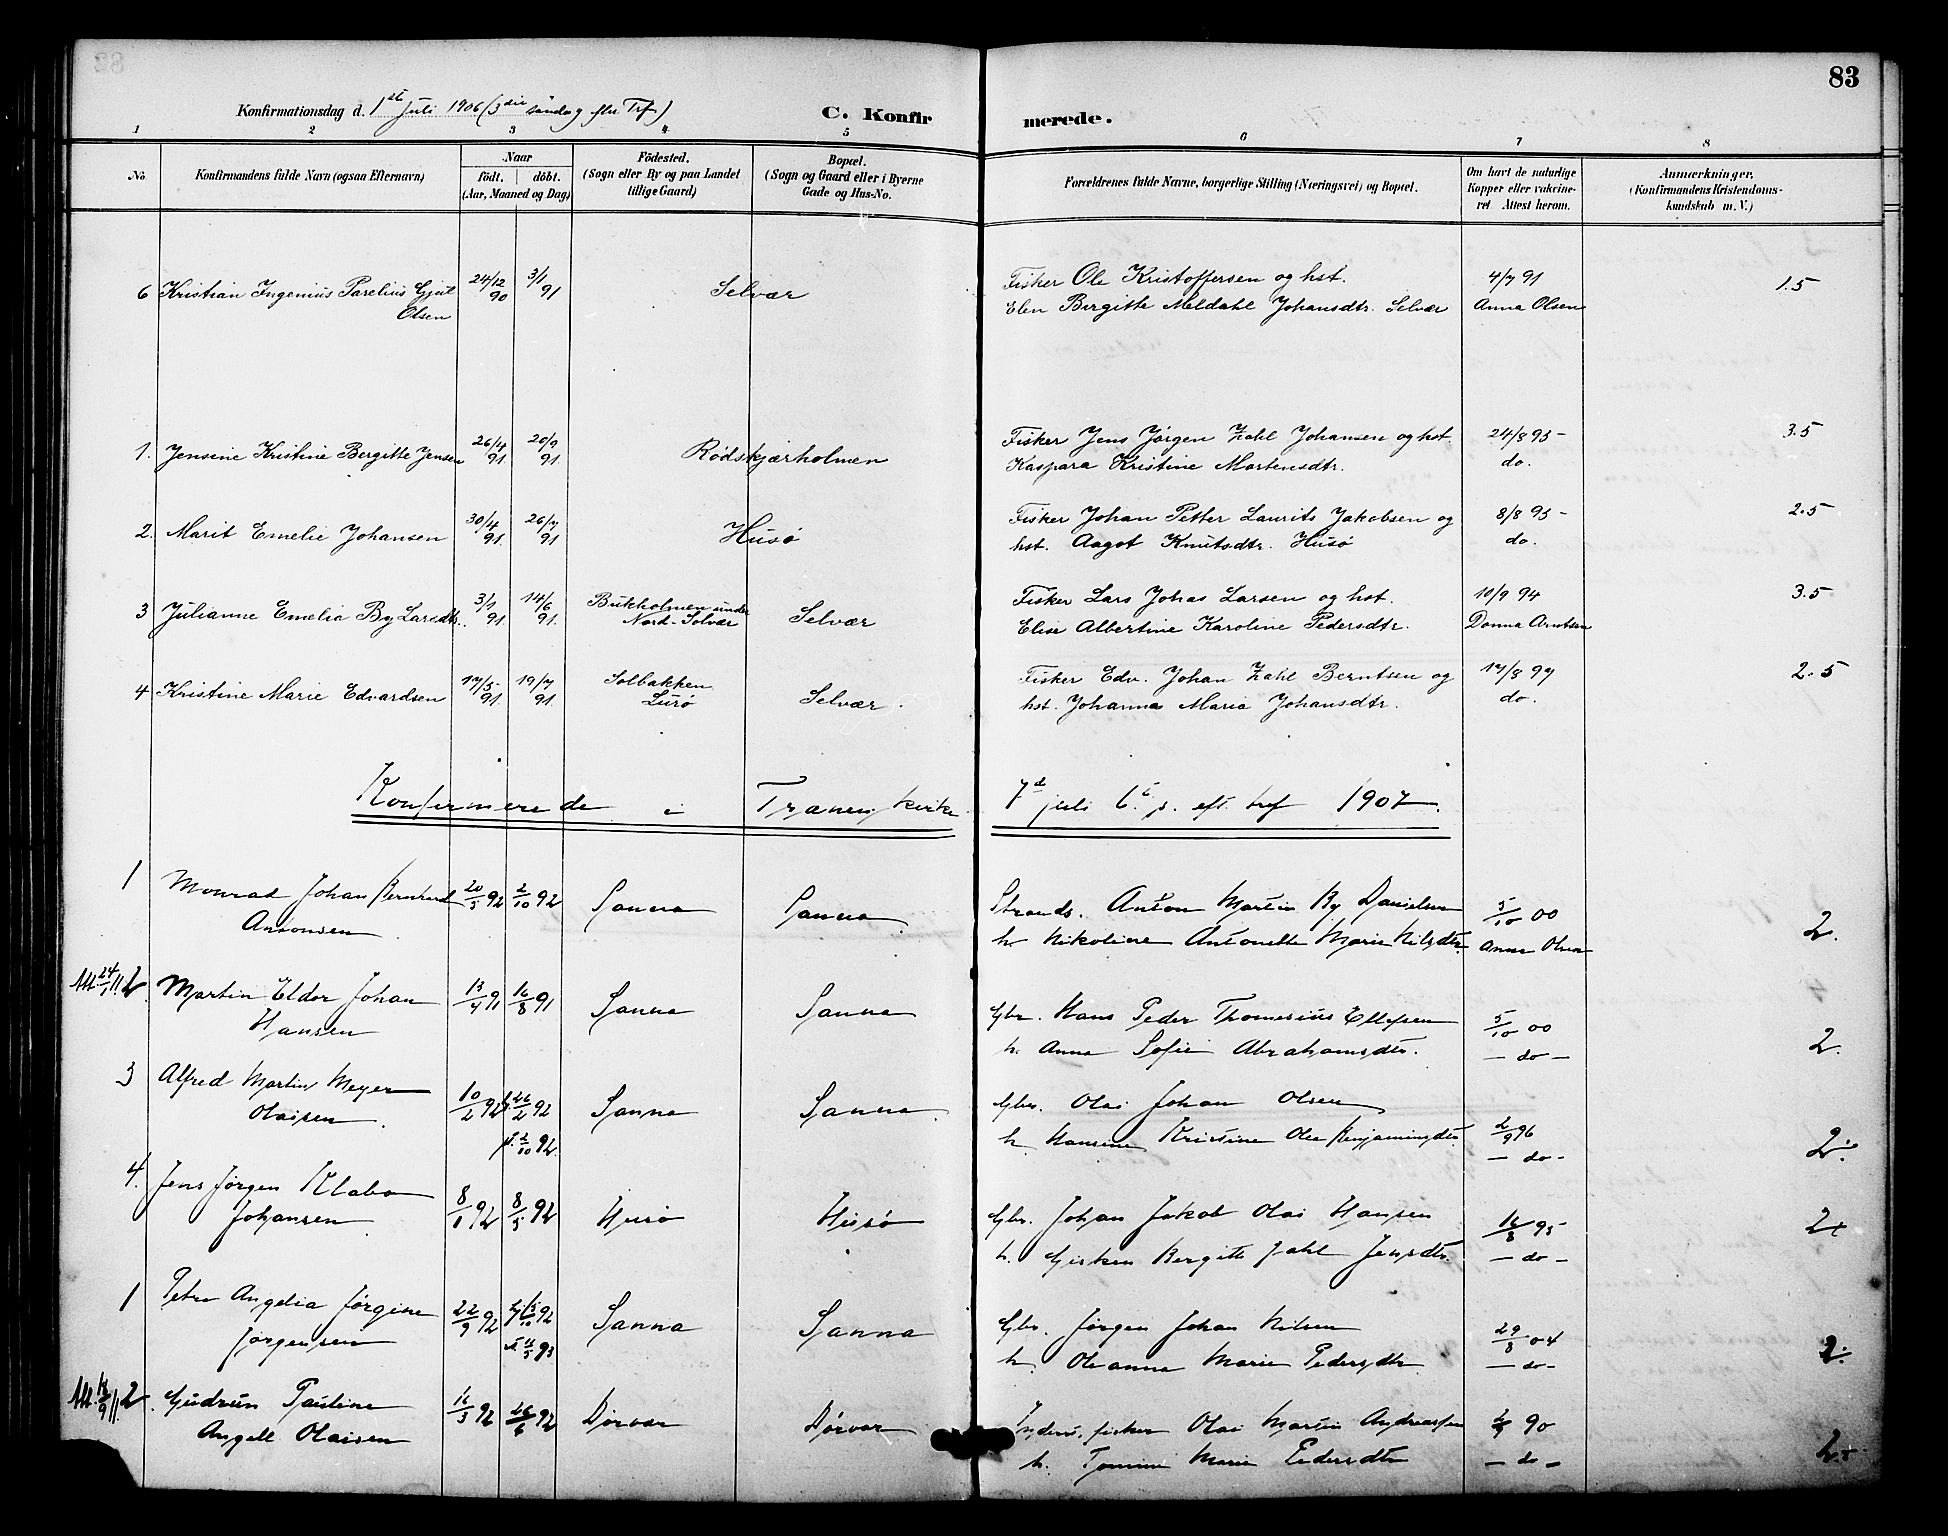 83
Konfirmationsdag d. 1ste Juli 1906 (3die söndag efter Trf.)
C. Konfirmerede.
1 2 3 4 5 6 7 8
No.
Konfirmandens fulde Navn (ogsaa Efternavn)
Naar
födt. döbt.
(Aar, Maaned og Dag)
Födested.
(Sogn eller By og paa Landet
tillige Gaard)
Bopæl.
(Sogn og Gaard eller i Byerne
Gade og Hus-No.
Forældrenes fulde Navne, borgerlige Stilling (Næringsvei) og Bopæl.
Om havt de naturlige
Kopper eller vakcine-
ret. Attest herom.
Anmærkninger.
(Konfirmandens Kristendoms-
kundskab m. V.)
6 Kristian Ingenius Parelius Gjut 24/12 90 3/1 91 Selvær Fisker Ole Kristoffersen og hst. 4/7 91 1.5
Olsen Elen Bergitte Meldahl Johansdtr. Selvær Anna Olsen
1. Jensine Kristine Bergitte Jensen 26/4 91 20/9 91. Rødskjærholmen Fisker Jens Jörgen Zahl Johansen og hst. 24/8 95 3.5
Kaspara Kristine Martensdtr. do.
2. Marit Emelie Johansen 30/4 91. 26/7 91 Husö Fisker Johan Petter Laurits Jakobsen og 8/8 95 2.5
hst. Aagot Knutsdtr. Husö do.
3 Julianne Emelie By Larsdtr. 3/1 91. 14/6 91. Bukholmen under Nord-Solvær Selvær Fisker Lars Johas Larsen og hst. 10/9 94 3.5
Elise Albertine Karoline Pedersdtr. Donna Arntsen
4 Kristine Marie Edvardsen 17/5 91. 19/7 91. Solbakken Lurö Selvær. Fisker Edv. Johan Zahl Berntsen og 17/8 97 2.5
hst. Johanna Maria Johansdtr. do.
Konfirmerede i Trænen kirke 7d juli 6te s. eft. tref 1907.
1 Monrad Johan Bernhard 20/5 92 2/10 92 Sanna Sanna Strands. Anton Martin By Danielsen 5/10 00 2.
Antonsen h. Nikoline Antonette Marie Nilsdtr. Anna Olsen
Att. 24/1 11. 2 Martin Eldor Johan 13/4 91 16/8 91 Sanna Sanna Gbr. Hans Peder Thomesius Ellefsen 5/10 00 2.
Hansen h. Anna Sofie Abrahamsdtr. — do —
3 Alfred Martin Meyer 10/2 92 26/2 92 Sanna Sanna Gbr. Olai Johan Olsen 2/9 96 2.
Olaisen. 2/10 92. h. Hansine Kristine Olea Benjaminsdtr. — do —
4. Jens Jørgen Klabo 8/1 92 8/5 92 Husö Husö Gbr. Johan Jakob Olai Hansen 16/8 95 2+
Johansen h. Gisken Bergitte Zahl Jensdtr. — do —
1 Petra Angelia Jørgine 22/9 92 92 Sanna Sanna Gbr. Jørgen Johan Nilsen 29/8 04 2.
Jørgensen 93 h. Oleanna Marie Pedersdtr. — do —
Att. 18/9 11. 2. Gudrun Pauline 16/3 92 26/6 92 Dørvær Dørvær Inders. fisker Olai Martin Andreassen 90
Angell Olaisen h. Marie Pedersdtr — do —